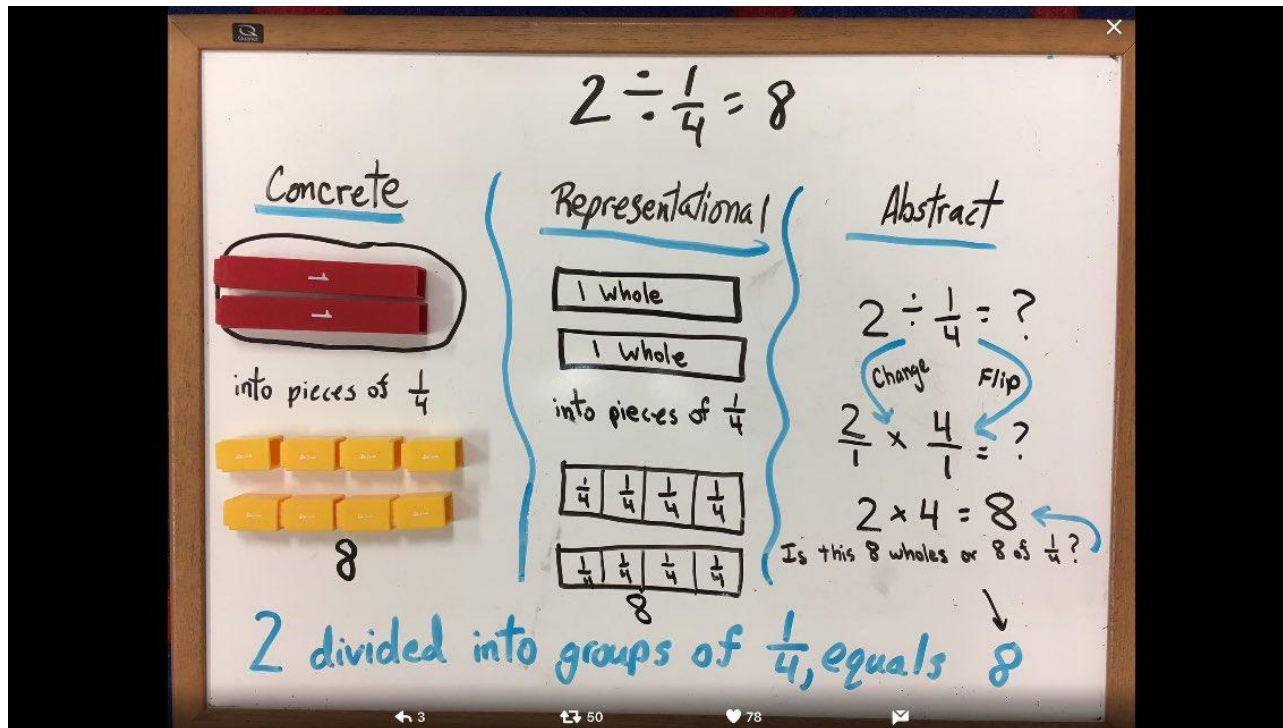 Quartet
2 ÷ 1/4 = 8
Concrete
1
1
into pieces of 1/4
8
Representational
1 Whole
1 Whole
into pieces of 1/4
1/4 1/4 1/4 1/4
1/4 1/4 1/4 1/4
8
Abstract
2 ÷ 1/4 = ?
Change Flip
2/1 × 4/1 = ?
2 × 4 = 8
Is this 8 wholes or 8 of 1/4?
2 divided into groups of 1/4, equals 8
3 50 78